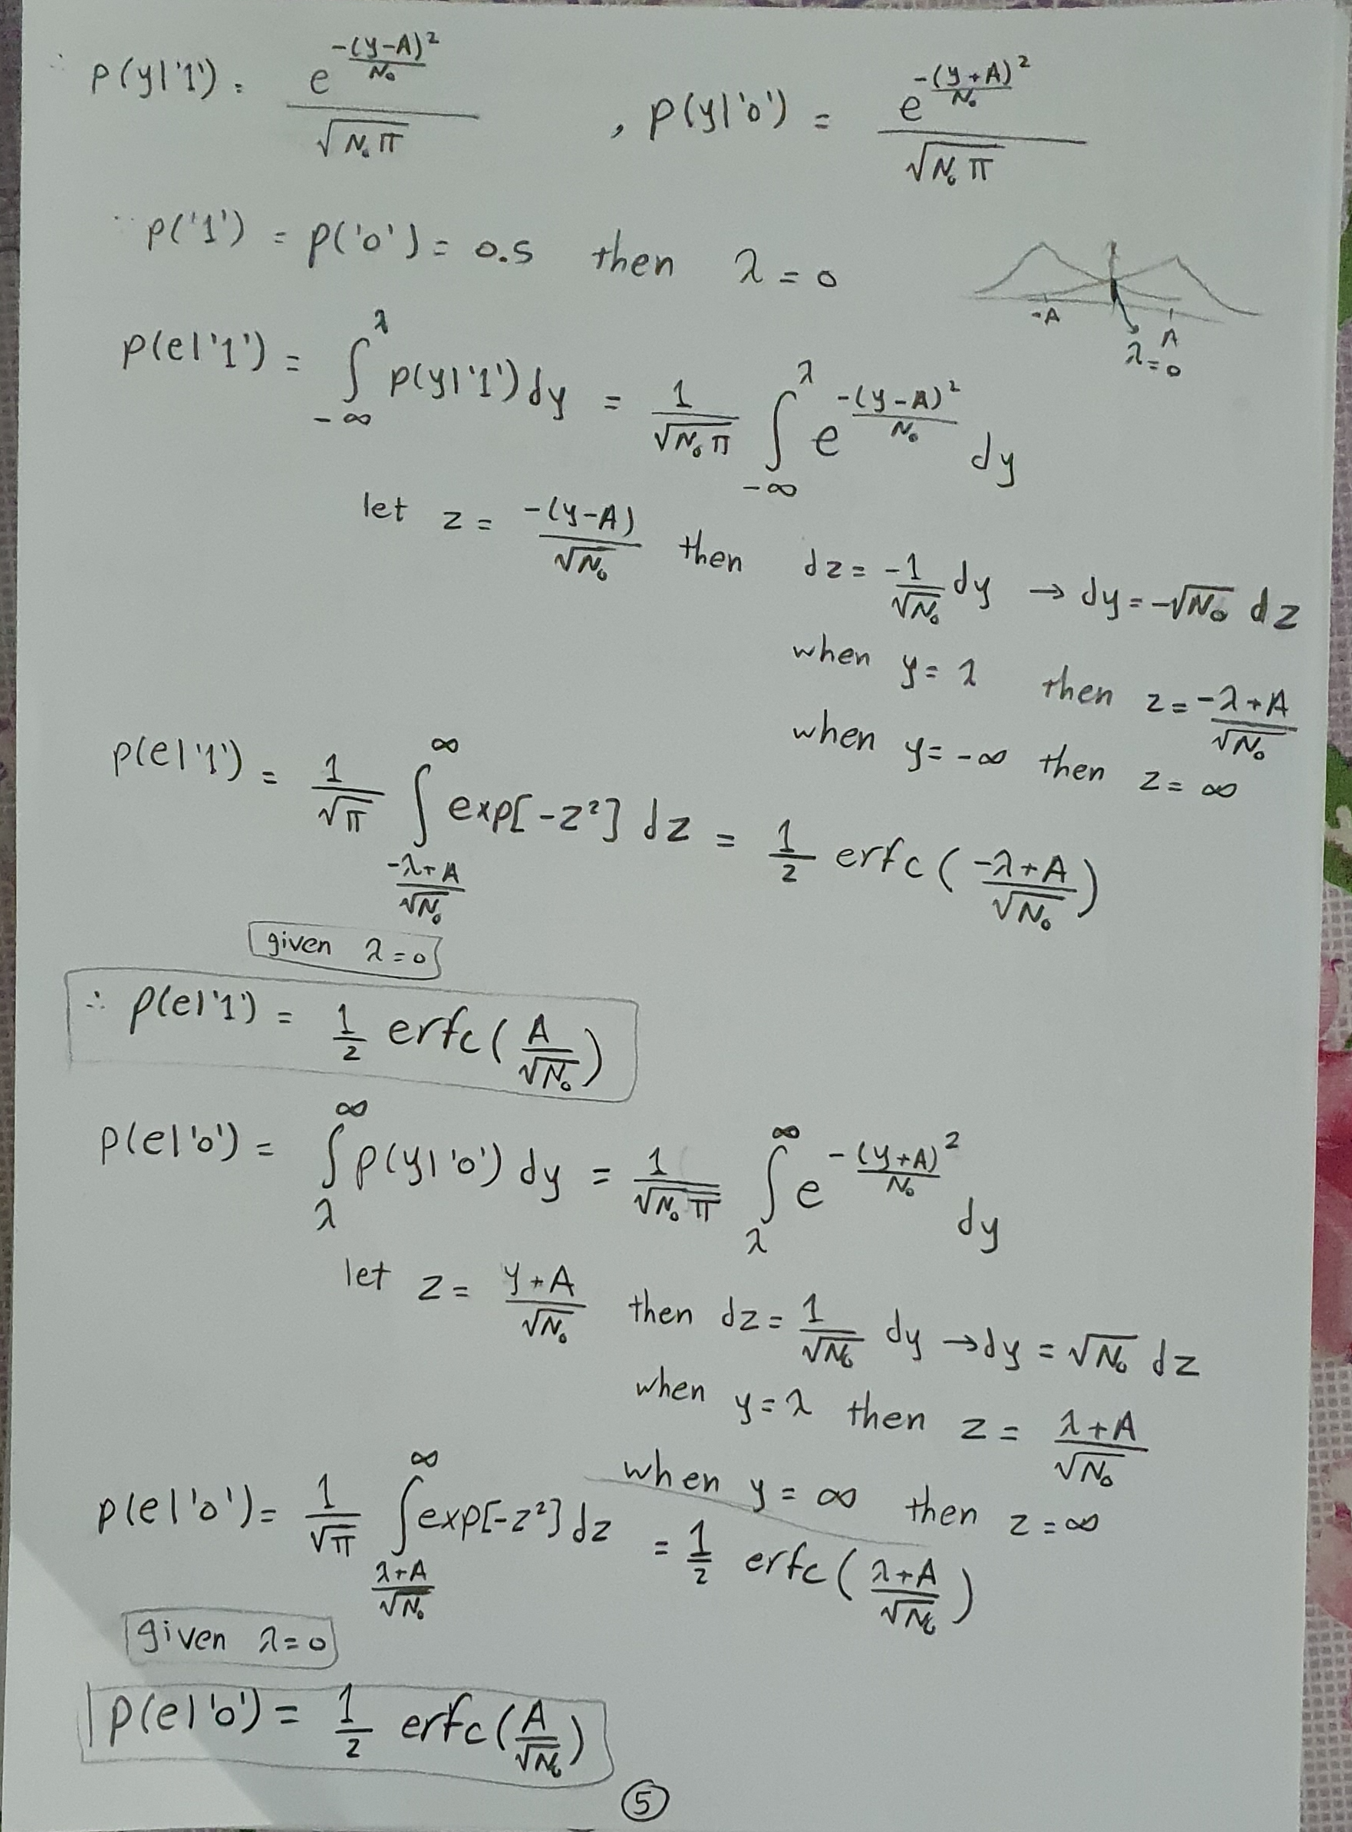 ∴ P(y|'1') = e^{-(y-A)²/N₀} / √(N₀π) , P(y|'0') = e^{-(y+A)²/N₀} / √(N₀π)
∵ P('1') = P('0') = 0.5 then λ = 0
-A A
λ=0
P(e|'1') = ∫_{-∞}^{λ} P(y|'1') dy = 1/√(N₀π) ∫_{-∞}^{λ} e^{-(y-A)²/N₀} dy
let z = -(y-A)/√N₀ then dz = -1/√N₀ dy → dy = -√N₀ dz
when y = λ then z = (-λ+A)/√N₀
when y = -∞ then z = ∞
P(e|'1') = 1/√π ∫_{(-λ+A)/√N₀}^{∞} exp[-z²] dz = 1/2 erfc((-λ+A)/√N₀)
given λ=0
∴ P(e|'1') = 1/2 erfc(A/√N₀)
P(e|'0') = ∫_{λ}^{∞} P(y|'0') dy = 1/√(N₀π) ∫_{λ}^{∞} e^{-(y+A)²/N₀} dy
let z = (y+A)/√N₀ then dz = 1/√N₀ dy → dy = √N₀ dz
when y = λ then z = (λ+A)/√N₀
when y = ∞ then z = ∞
P(e|'0') = 1/√π ∫_{(λ+A)/√N₀}^{∞} exp[-z²] dz = 1/2 erfc((λ+A)/√N₀)
given λ=0
P(e|'0') = 1/2 erfc(A/√N₀)
5